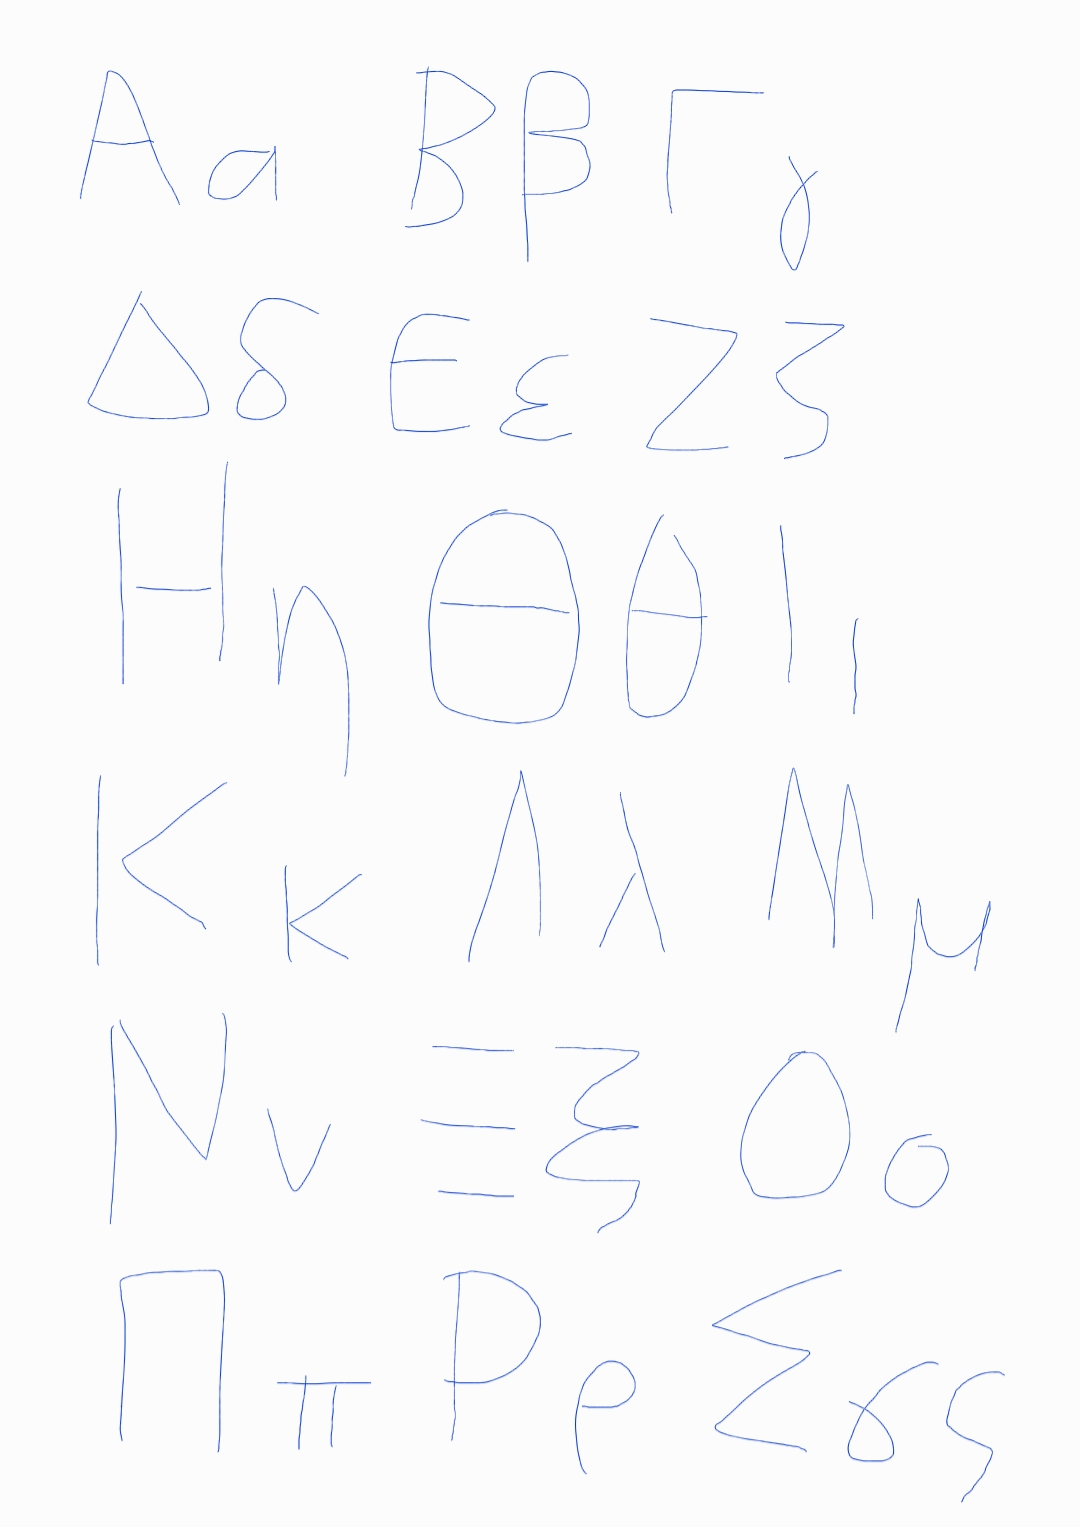 Α α Β β Γ γ
Δ δ Ε ε Ζ ζ
Η η Θ θ Ι ι
Κ κ Λ λ Μ μ
Ν ν Ξ ξ Ο ο
Π π Ρ ρ Σ σ ς